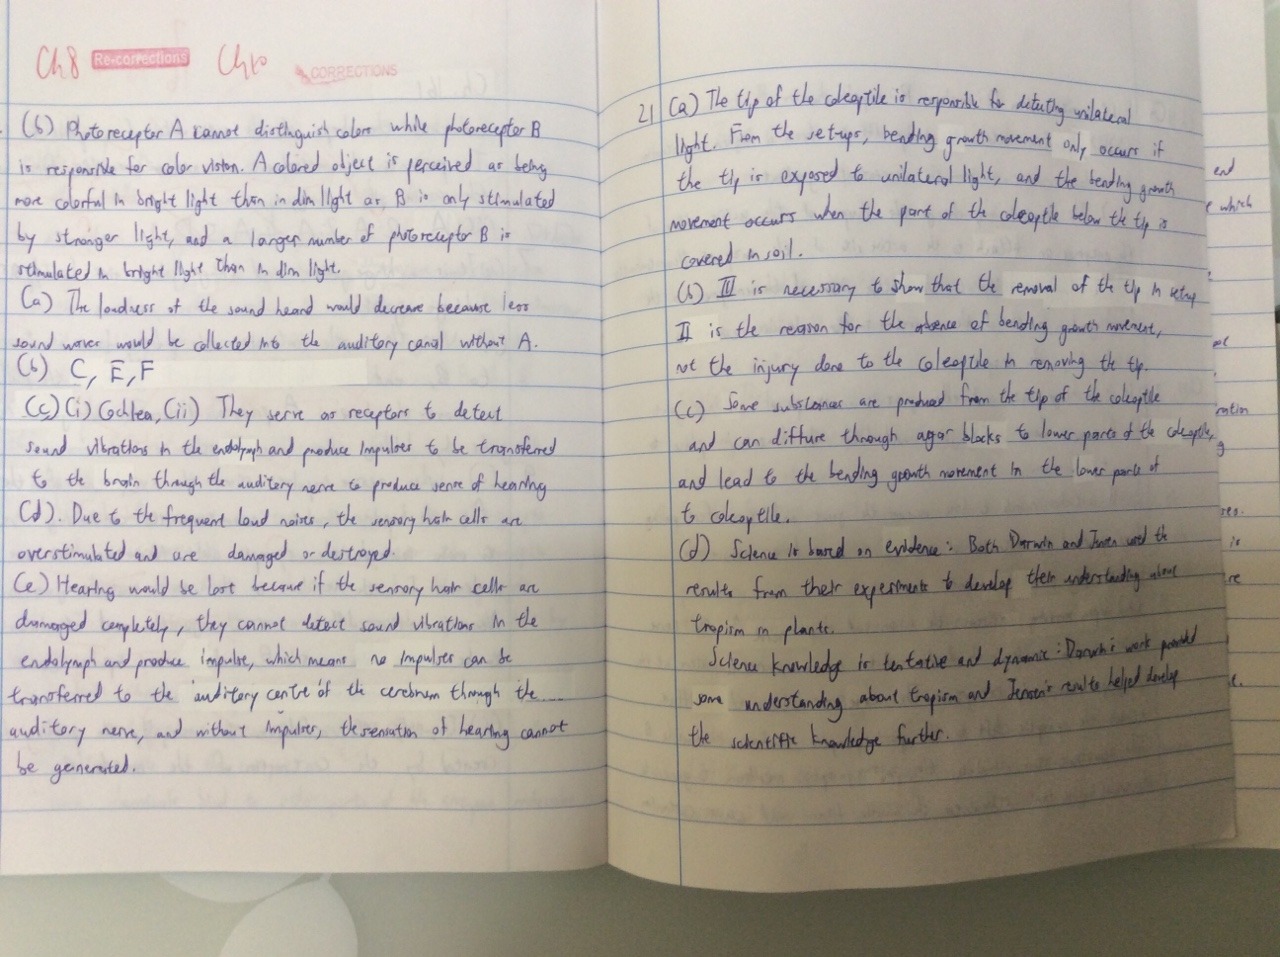 Ch8 Re-corrections Ch10 CORRECTIONS
(b) Photoreceptor A cannot distinguish colors while photoreceptor B
is responsible for color vision. A colored object is perceived as being
more colorful in bright light than in dim light as B is only stimulated
by stronger light, and a larger number of photoreceptor B is
stimulated in bright light than in dim light.
(a) The loudness of the sound heard would decrease because less
sound waves would be collected into the auditory canal without A.
(b) C, E, F
(c)(i) Cochlea, (ii) They serve as receptors to detect
sound vibrations in the endolymph and produce impulses to be transferred
to the brain through the auditory nerve to produce sense of hearing
(d). Due to the frequent loud noises, the sensory hair cells are
overstimulated and are damaged or destroyed.
(e) Hearing would be lost because if the sensory hair cells are
damaged completely, they cannot detect sound vibrations in the
endolymph and produce impulse, which means no impulses can be
transferred to the auditory centre of the cerebrum through the
auditory nerve, and without impulses, the sensation of hearing cannot
be generated.
21 (a) The tip of the coleoptile is responsible for detecting unilateral
light. From the set-ups, bending growth movement only occurs if
the tip is exposed to unilateral light, and the bending growth
movement occurs when the part of the coleoptile below the tip is
covered in soil.
(b) III is necessary to show that the removal of the tip in setup
II is the reason for the absence of bending growth movement,
not the injury done to the coleoptile in removing the tip.
(c) Some substances are produced from the tip of the coleoptile
and can diffuse through agar blocks to lower parts of the coleoptile,
and lead to the bending growth movement in the lower parts of
to coleoptile.
(d) Science is based on evidence: Both Darwin and Jensen used the
results from their experiments to develop their understanding about
tropism in plants.
Science knowledge is tentative and dynamic: Darwin's work provided
some understanding about tropism and Jensen's results helped develop
the scientific knowledge further.
end
which
is